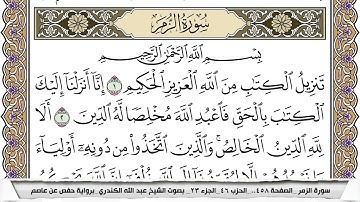 سُورَةُ الزُّمَرِ
بِسْمِ اللَّهِ الرَّحْمَٰنِ الرَّحِيمِ
تَنزِيلُ الْكِتَٰبِ مِنَ اللَّهِ الْعَزِيزِ الْحَكِيمِ ١ إِنَّا أَنزَلْنَا إِلَيْكَ
الْكِتَٰبَ بِالْحَقِّ فَاعْبُدِ اللَّهَ مُخْلِصًا لَّهُ الدِّينَ ٢ أَلَا
لِلَّهِ الدِّينُ الْخَالِصُ وَالَّذِينَ اتَّخَذُوا مِن دُونِهِ أَوْلِيَاءَ
سورة الزمر _الصفحة ٤٥٨_ الحزب ٤٦_الجزء ٢٣_ بصوت الشيخ عبد الله الكندري_برواية حفص عن عاصم